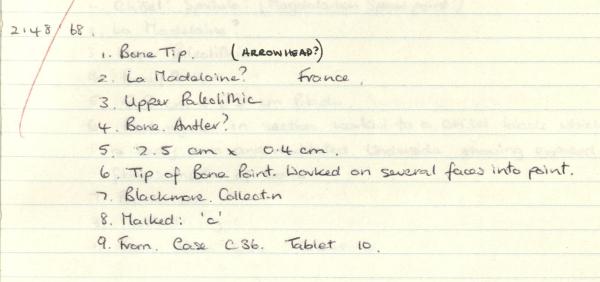 2.48/68.
1. Bone Tip. (ARROWHEAD?)
2. La Madelaine? France.
3. Upper Paleolithic
4. Bone. Antler?
5. 2.5 cm x 0.4 cm.
6. Tip of Bone Point. Worked on several faces into point.
7. Blackmore. Collectn
8. Marked: 'c'
9. From. Case C36. Tablet 10.